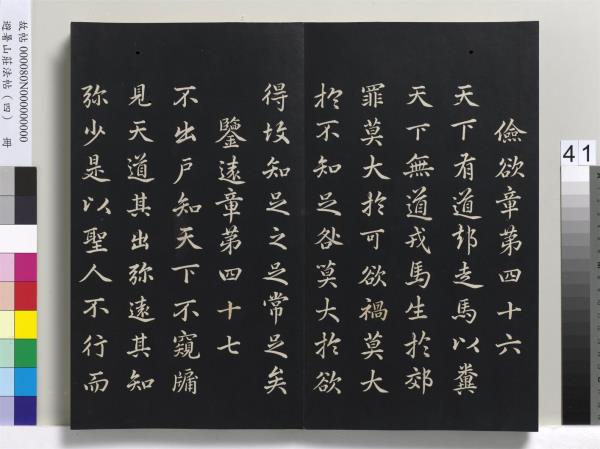 儉欲章第四十六
天下有道郤走馬以糞
天下無道戎馬生於郊
罪莫大於可欲禍莫大
於不知足咎莫大於欲
得故知足之足常足矣
鑒遠章第四十七
不出戶知天下不窺牖
見天道其出弥遠其知
弥少是以聖人不行而
故帖 000080N000000000
避暑山莊法帖（四） 冊
41